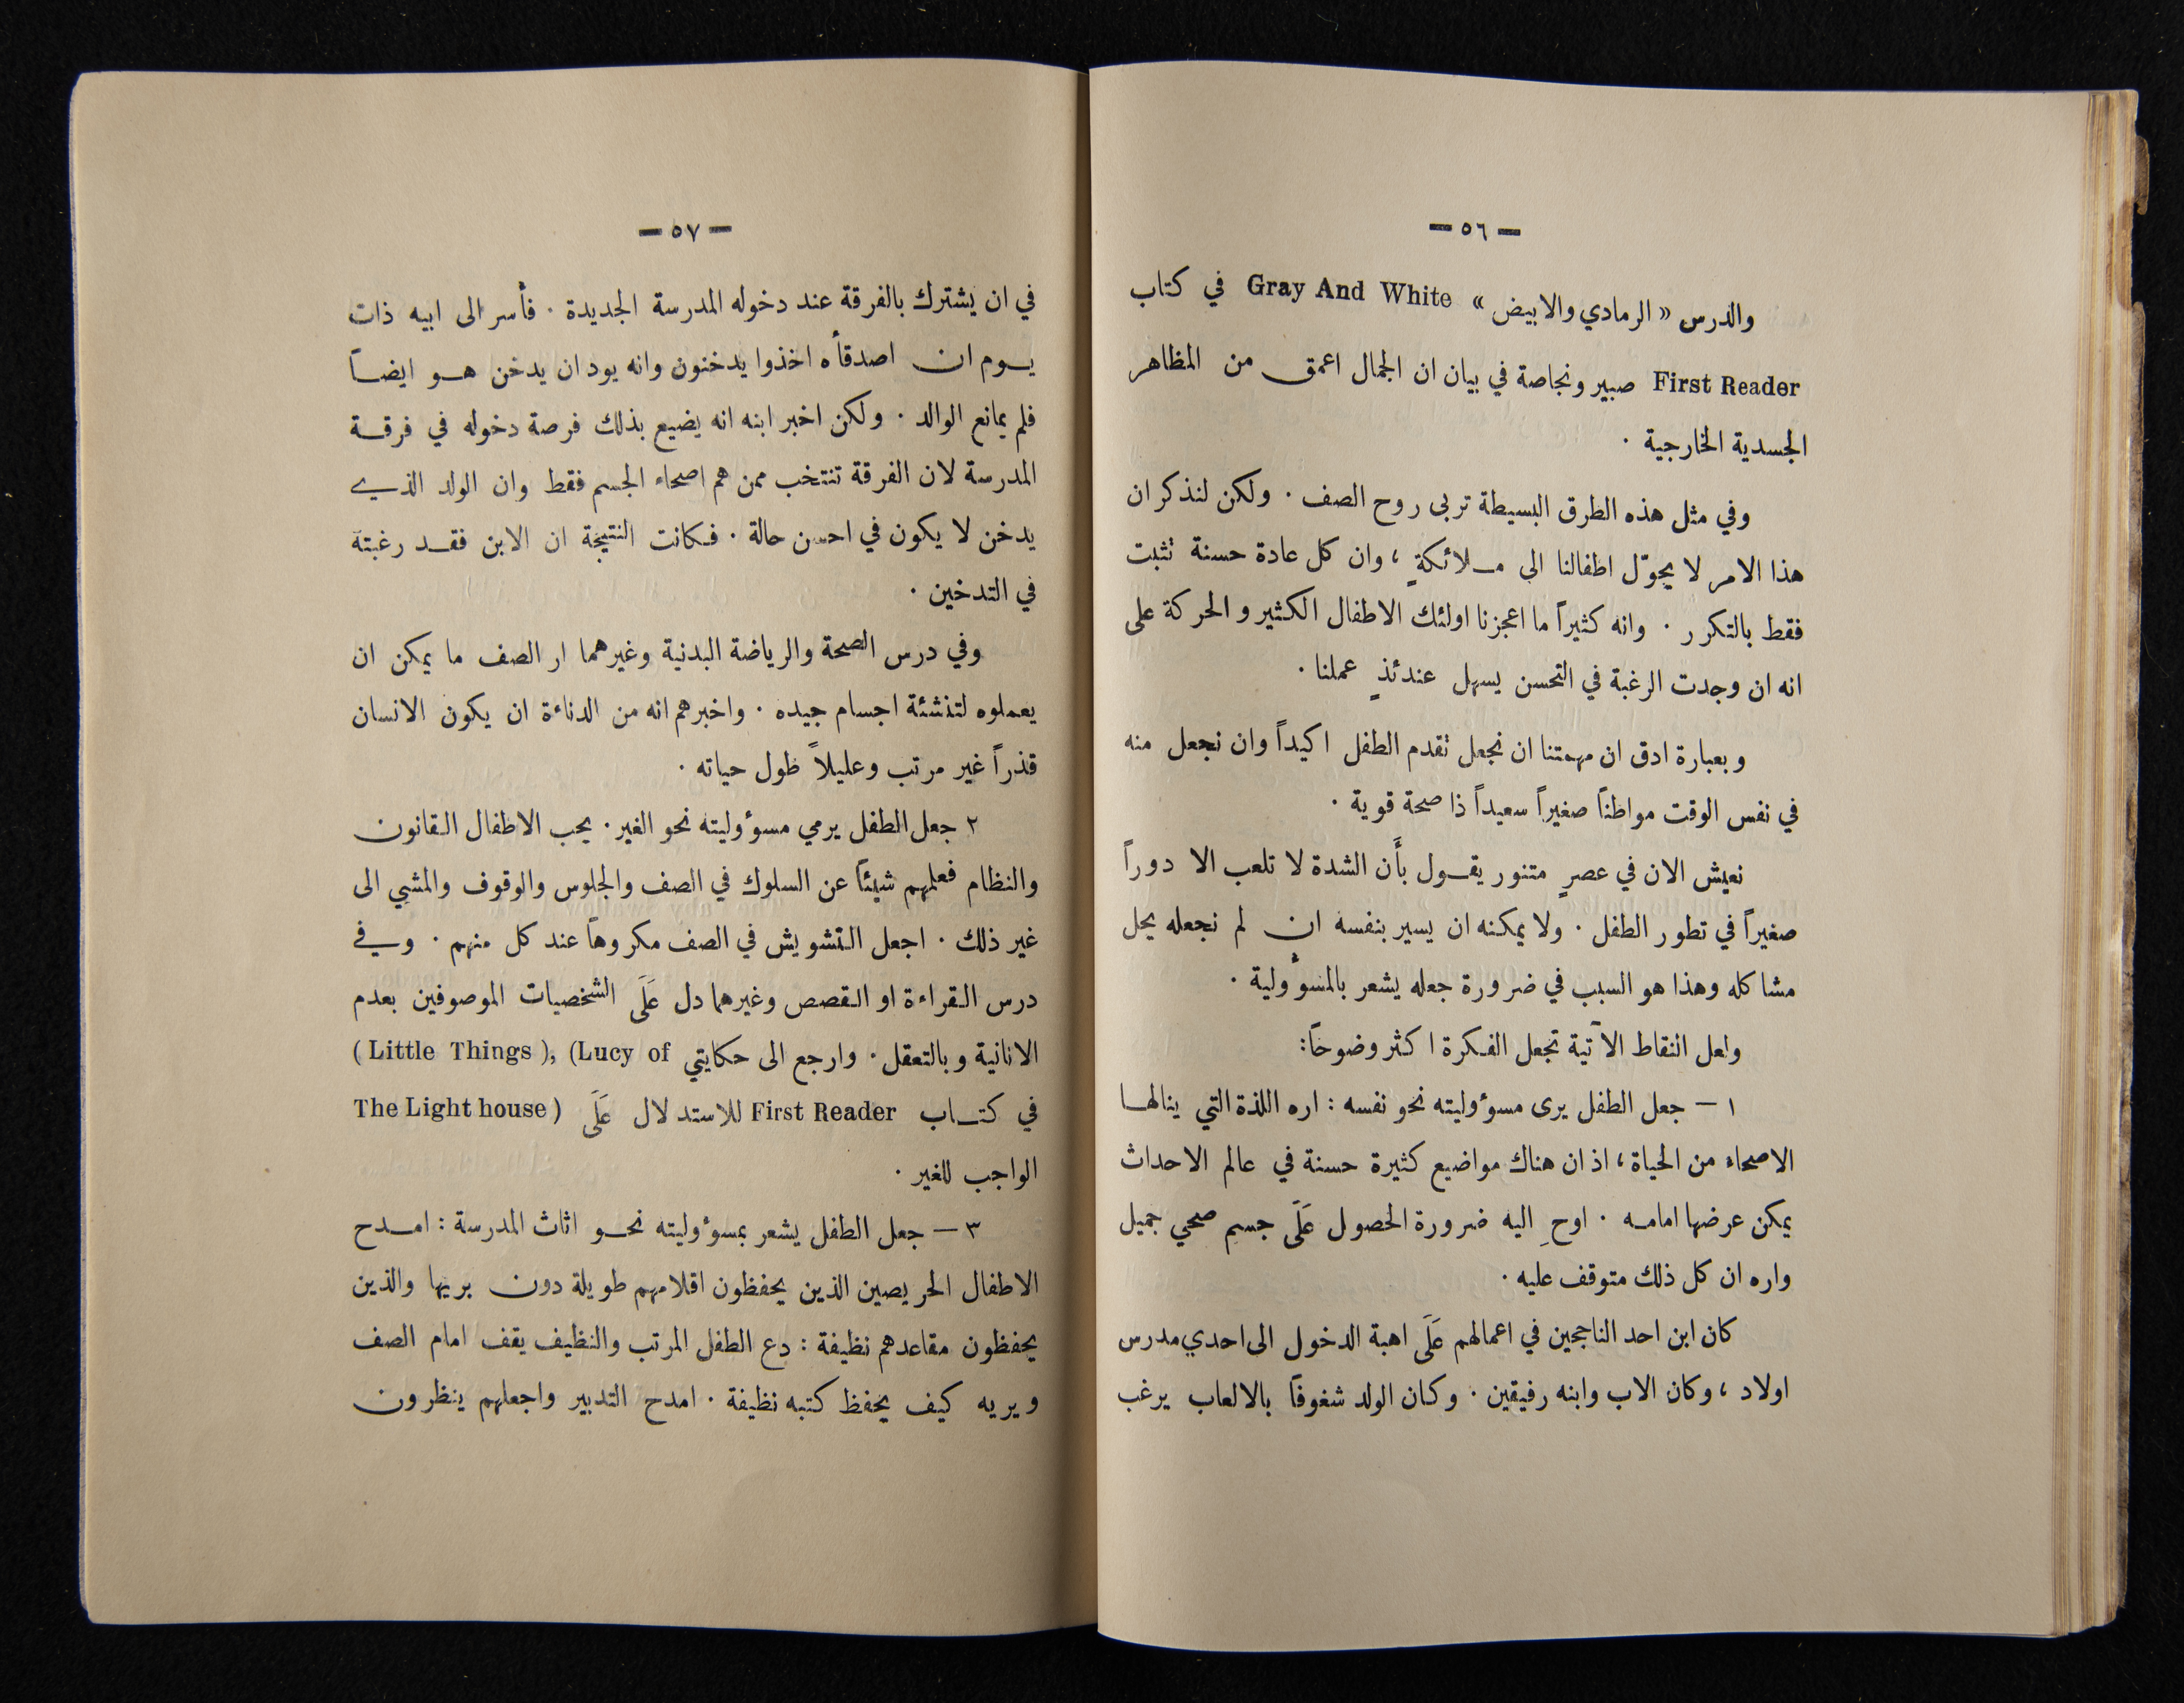 — ٥٦ —
والدرس « الرمادي والابيض » Gray And White في كتاب
First Reader صبير ونجاصة في بيان ان الجمال اعمق من المظاهر
الجسدية الخارجية .
وفي مثل هذه الطرق البسيطة تربى روح الصف . ولكن لنذكر ان
هذا الامر لا يحوّل اطفالنا الى مـلائكةٍ ، وان كل عادة حسنة تثبت
فقط بالتكرر . وانه كثيراً ما اعجزنا اولئك الاطفال الكثير و الحركة على
انه ان وجدت الرغبة في التحسن يسهل عندئذٍ عملنا .
وبعبارة ادق ان مهمتنا ان نجعل تقدم الطفل اكيداً وان نجعل منه
في نفس الوقت مواطناً صغيراً سعيداً ذا صحة قوية .
نعيش الان في عصرٍ متنور يقـول بأَن الشدة لا تلعب الا دوراً
صغيراً في تطور الطفل . ولا يمكنه ان يسير بنفسه ان لم نجعله يحل
مشاكله وهذا هو السبب في ضرورة جعله يشعر بالمسؤولية .
ولعل النقاط الآتية تجعل الفكرة اكثر وضوحاً:
١ — جعل الطفل يرى مسؤوليته نحو نفسه : اره اللذة التي ينالهـا
الاصحاء من الحياة ، اذ ان هناك مواضيع كثيرة حسنة في عالم الاحداث
يمكن عرضها امامـه . اوحِ اليه ضرورة الحصول عَلَى جسمٍ صحي جميل
واره ان كل ذلك متوقف عليه .
كان ابن احد الناجحين في اعمالهم عَلَى اهبة الدخول الى احدي مدرس
اولاد ، وكان الاب وابنه رفيقين . وكان الولد شغوفاً بالالعاب يرغب
— ٥٧ —
في ان يشترك بالفرقة عند دخوله المدرسة الجديدة . فأسر الى ابيه ذات
يـوم ان اصدقأه اخذوا يدخنون وانه يود ان يدخن هـو ايضـاً
فلم يمانع الوالد . ولكن اخبر ابنه انه يضيع بذلك فرصة دخوله في فرقـة
المدرسة لان الفرقة تنتخب ممن هم اصحاء الجسم فقط وان الولد الذي
يدخن لا يكون في احسن حالة . فكانت النتيجة ان الابن فقـد رغبته
في التدخين .
وفي درس الصحة والرياضة البدنية وغيرهما ار الصف ما يمكن ان
يعملوه لتنشئة اجسام جيده . واخبرهم انه من الدناءة ان يكون الانسان
قذراً غير مرتب وعليلاً طول حياته .
٢ جعل الطفل يرمي مسؤوليته نحو الغير . يحب الاطفال القانون
والنظام فعلمهم شيئاً عن السلوك في الصف والجلوس والوقوف والمشي الى
غير ذلك . اجعل التشويش في الصف مكروهاً عند كل منهم . وفي
درس القراءة او القصص وغيرهما دل عَلَى الشخصيات الموصوفين بعدم
الانانية وبالتعقل . وارجع الى حكايتي (Little Things), (Lucy of
The Light house) في كتـاب First Reader للاستدلال عَلَى
الواجب للغير .
٣ — جعل الطفل يشعر بمسؤوليته نحـو اثاث المدرسة : امـدح
الاطفال الحريصين الذين يحفظون اقلامهم طويلة دون بريها والذين
يحفظون مقاعدهم نظيفة : دع الطفل المرتب والنظيف يقف امام الصف
ويريه كيف يحفظ كتبه نظيفة . امدح التدبير واجعلهم ينظرون